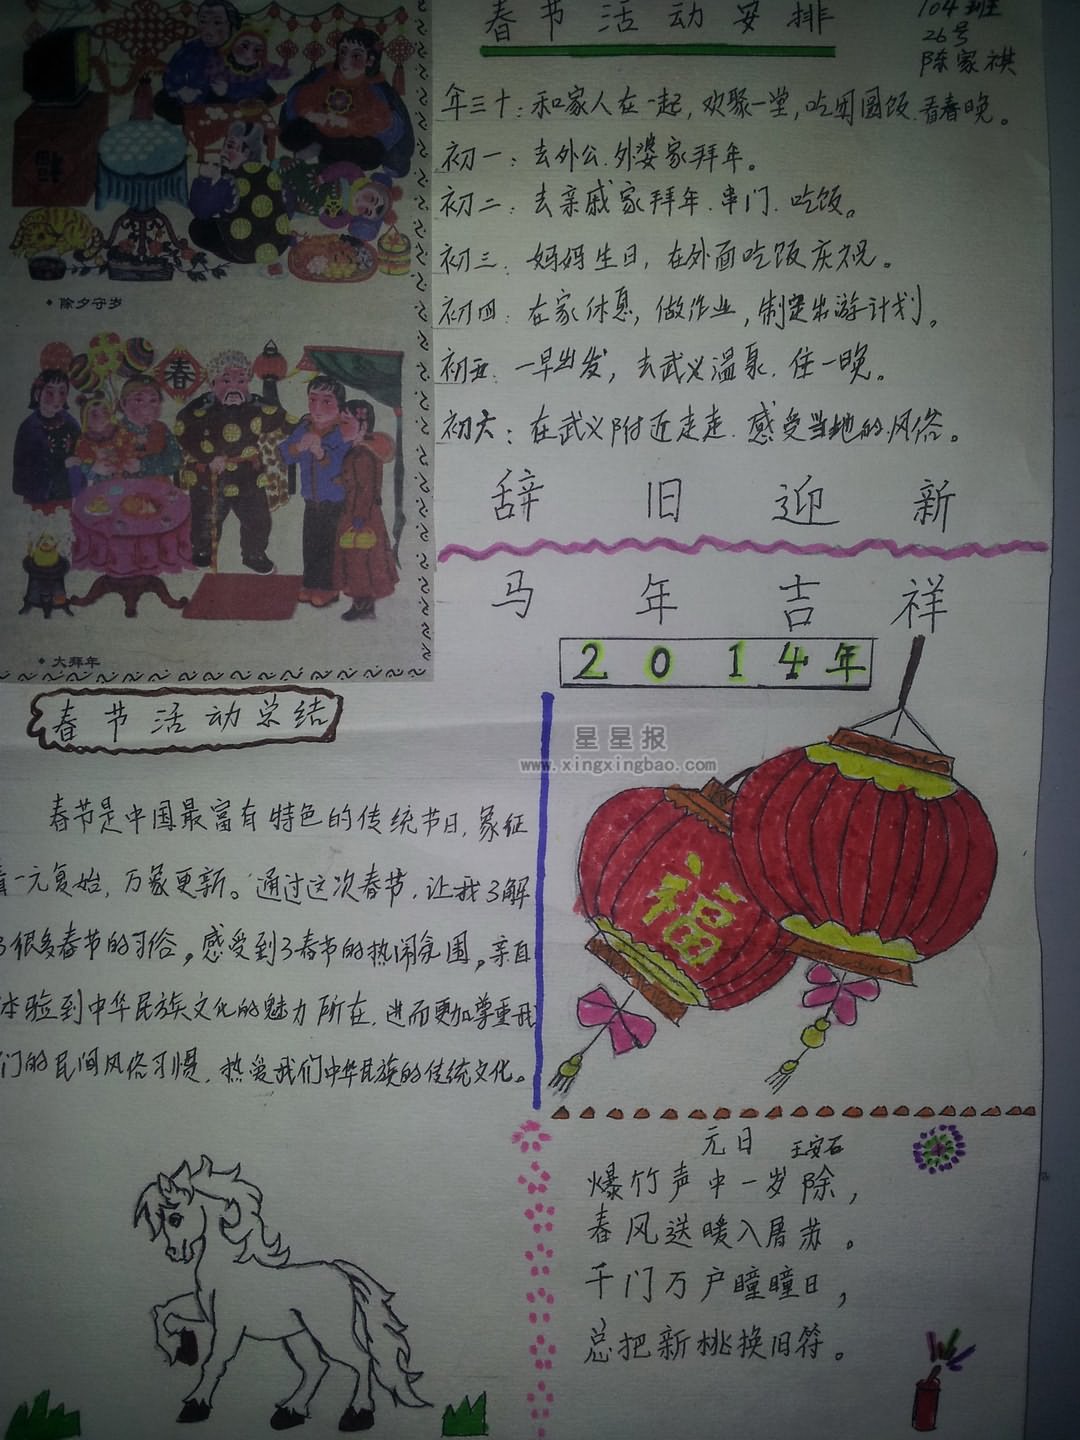 春节活动安排
104班
26号
陈家祺
年三十:和家人在一起,欢聚一堂,吃团圆饭.看春晚。
初一:去外公.外婆家拜年。
初二:去亲戚家拜年.串门.吃饭。
初三:妈妈生日,在外面吃饭庆祝。
初四:在家休息,做作业,制定出游计划。
初五:一早出发,去武义温泉.住一晚。
初六:在武义附近走走.感受当地的风俗。
福
除夕守岁
春
大拜年
辞旧迎新
马年吉祥
2014年
春节活动总结
星星报
www.xingxingbao.com
春节是中国最富有特色的传统节日,象征
着一元复始,万象更新。通过这次春节,让我了解
了很多春节的习俗,感受到了春节的热闹氛围,亲自
体验到中华民族文化的魅力所在,进而更加尊重我
们的民间风俗习惯,热爱我们中华民族的传统文化。
福
元日 王安石
爆竹声中一岁除,
春风送暖入屠苏。
千门万户瞳瞳日,
总把新桃换旧符。